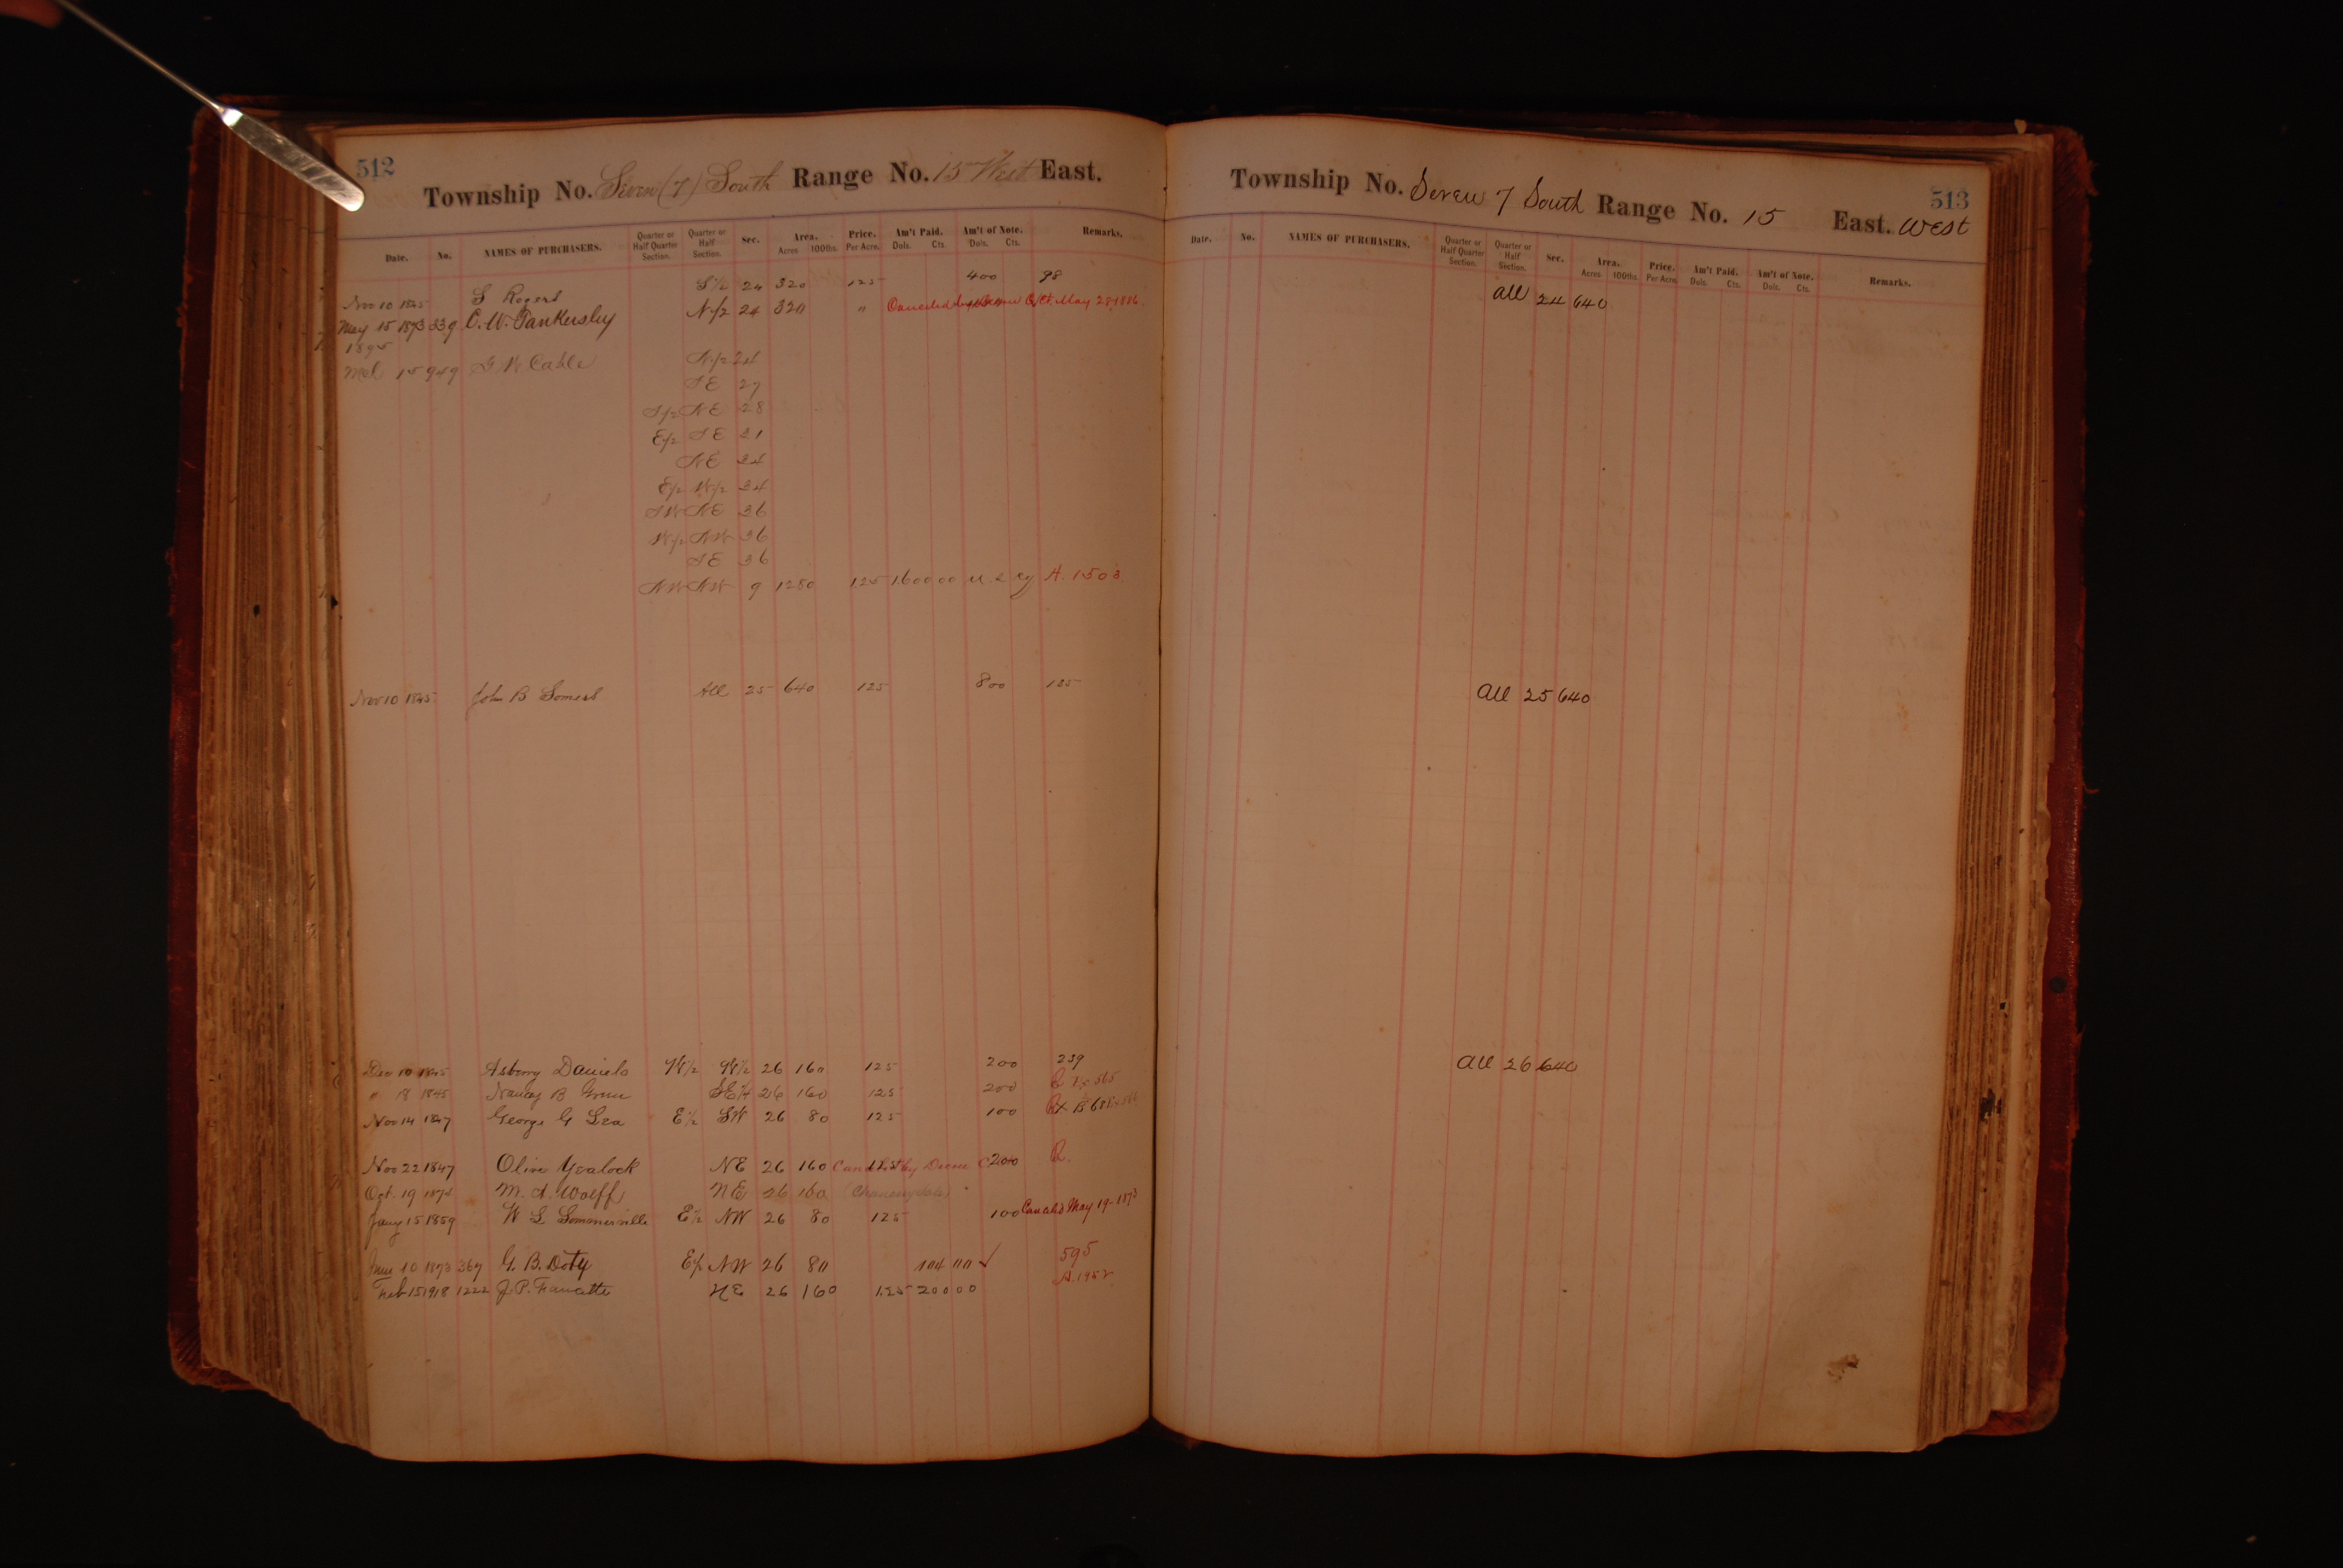 512
Township No. Seven (7) South Range No. 15 West East.
Date. No. NAMES OF PURCHASERS. Quarter or Half Quarter Section. Quarter or Half Section. Sec. Area. Acres 100ths. Price. Per Acre. Am't Paid. Dols. Cts. Am't of Note. Dols. Cts. Remarks.
Nov 10 1845 S Rogers S 1/2 24 320 125 400 98
May 15 1873 339 C. W. Tankersley N 1/2 24 320 " Canceled by Decree May 28 1886
1895
Mch 15 949 G W Cable N 1/2 24
SE 27
S 1/2 NE 28
E 1/2 SE 21
NE 34
E 1/2 W 1/2 34
SW NE 36
W 1/2 NW 36
SE 36
NW NW 9 1280 125 1600 00 A. 1503
Nov 10 1845 John B Somers All 25 640 125 800 125
Dec 10 1845 Asberry Daniels W 1/2 W 1/2 26 160 125 200 239
" 18 1845 Nancy B Green SE 1/4 26 160 125 200 565
Nov 14 1847 George G Lea E 1/2 SW 26 80 125 100
Nov 22 1847 Olive Yealock NE 26 160 Canceled by Decree 125 200 R.
Oct. 19 M. A. Wolff NE 26 160
Jany 15 1859 W L Sommerville E 1/2 NW 26 80 125 100 Canceled May 19-1873
June 10 1873 367 G. B. Doty E 1/2 NW 26 80 104 00 ✓ 595
Feb 15 1918 1222 J. P. Faucette NE 26 160 1.25 200 00 A. 1952
513
Township No. Seven 7 South Range No. 15 East. West
Date. No. NAMES OF PURCHASERS. Quarter or Half Quarter Section. Quarter or Half Section. Sec. Area. Acres 100ths. Price. Per Acre Am't Paid. Dols. Cts. Am't of Note. Dols. Cts. Remarks.
All 24 640
All 25 640
All 26 640